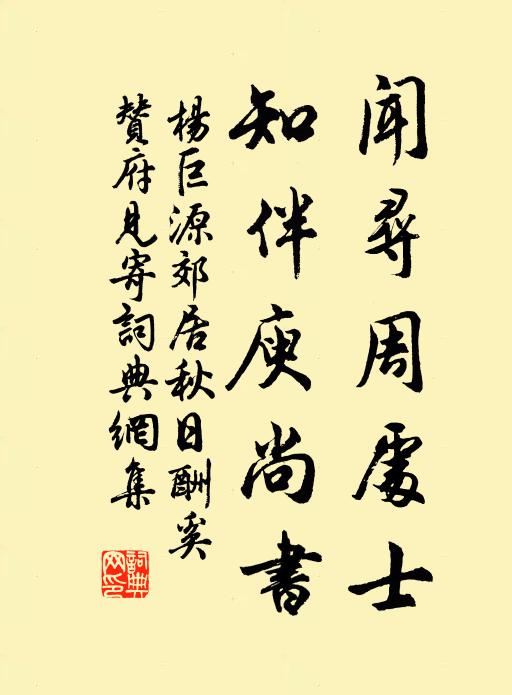 聞尋周處士
知伴庾尚書
楊巨源郊居秋日酬奚
贊府見寄詞典網集
詞典網印